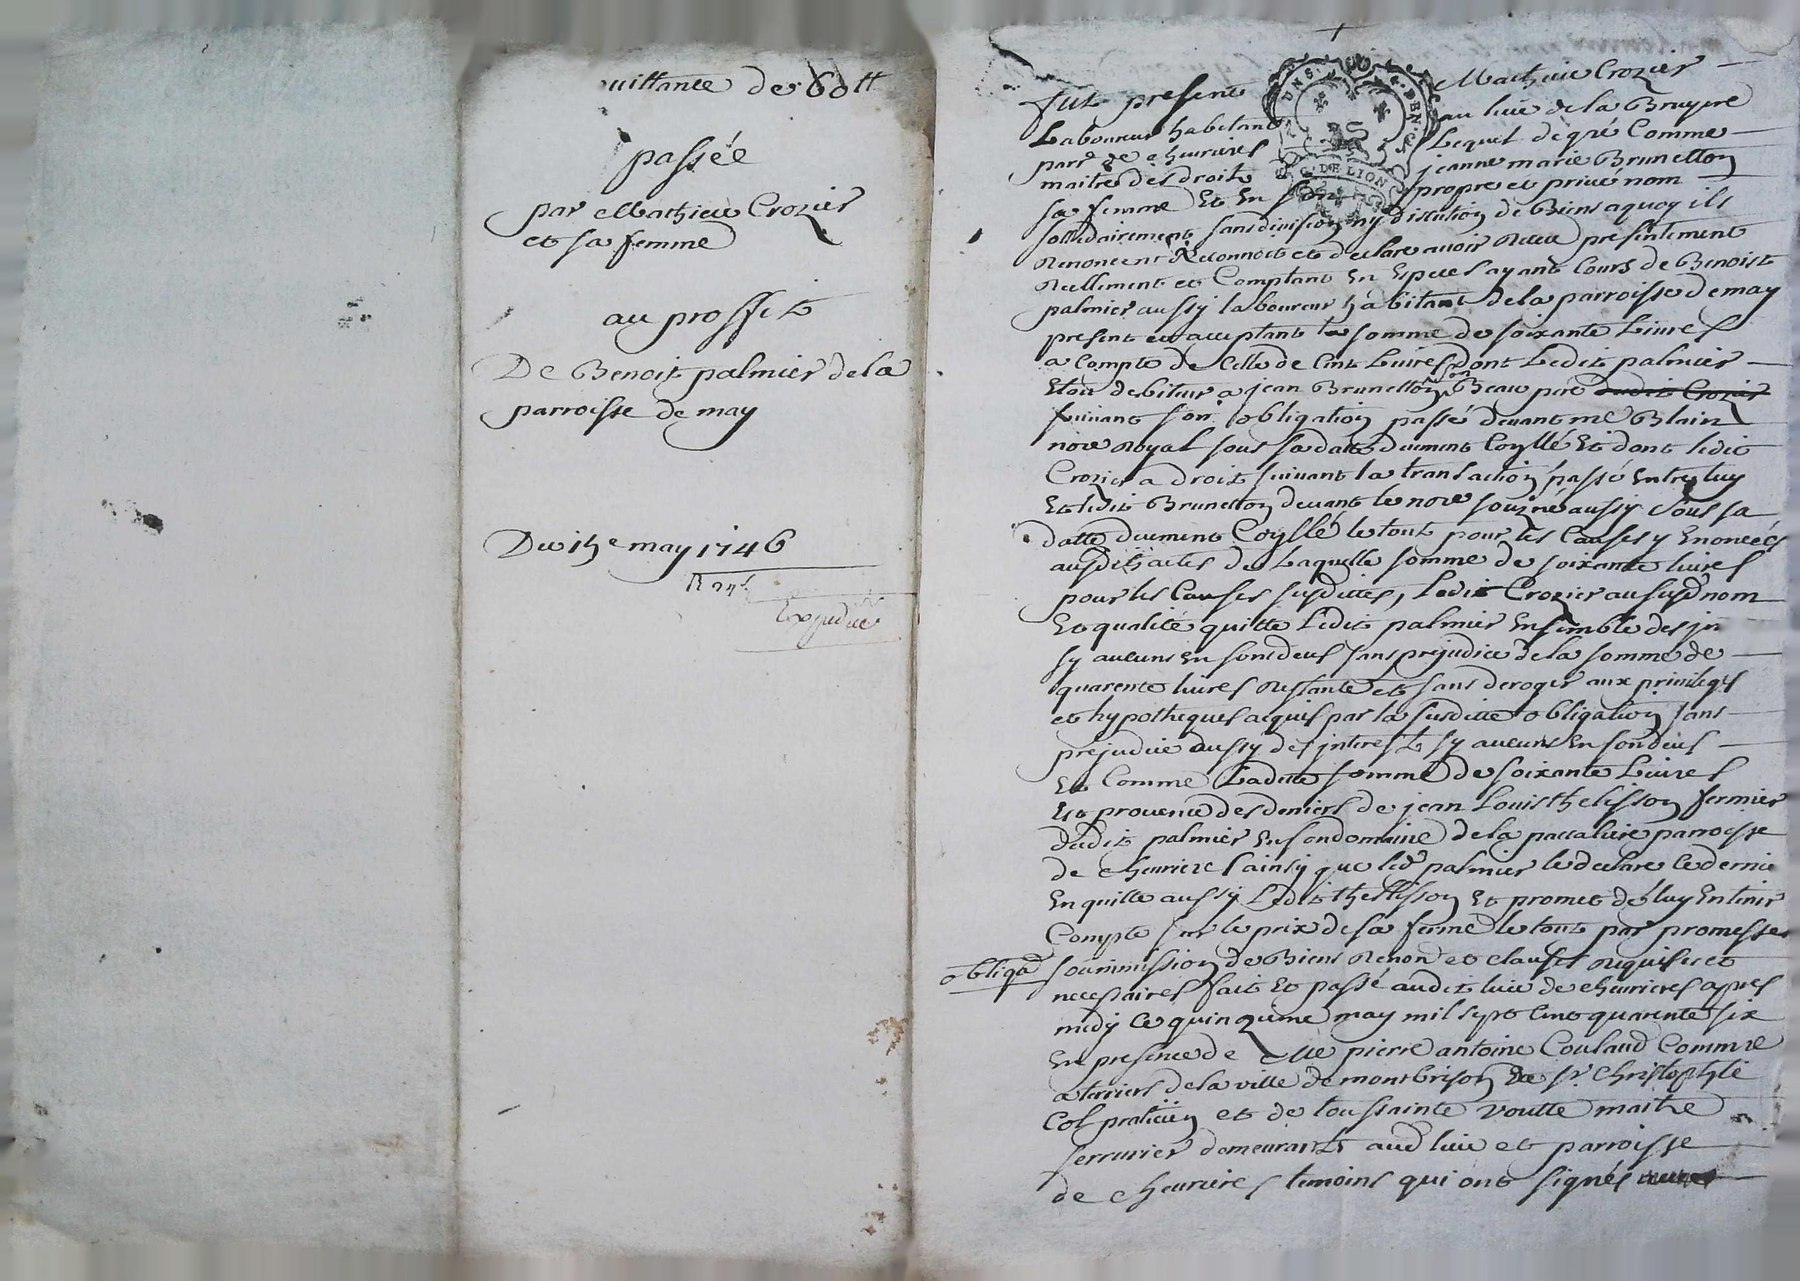 uittance de 60tt
passée
par Mathieu Crozier
et sa femme
au proffit
De Benoit palmier de la
parroisse de may
Du 15e may 1746
Expediee
fut present Mathieu Crozier
Laboureur habitant au lieu de la Bruyere
parr de cheurieres Lequel de gré Comme
maitre des droits jeanne marie Brunetton
sa femme Et En son propre et privé nom
solidairement sans division ny discution de Biens a quoy ils
Renoncent Reconnoit et declare avoir Receu presentement
Reellement et Comptant En Especes ayant Cours de Benoist
palmier aussy laboureur habitant de la parroisse de may
present et acceptant la somme de soixante Livres
a Compte de Celle de Cent Livres dont Ledit palmier
Etoit debiteur a jean Brunetton son Beau pere dudit Crozier
suivant son obligation passé devant me Blain
nore Royal sous sa datte duement Coyllé Et dont ledit
Crozier a droit suivant la transaction passé Entre luy
Et ledit Brunetton devant le nore souzné aussy sous sa
datte duement Coyllé le tout pour les Causes y Enoncées
ausdits actes de Laquelle somme de soixante livres
pour les Causes susdittes, Ledit Crozier au susd nom
Et qualité quitte Ledit palmier Ensemble des in
sy aucuns En sons deus sans prejudice de la somme de
quarente livres Restante et sans deroger aux privileges
et hypotheques acquis par la susditte obligation sans
prejudice aussy des jnterests sy aucuns En son deus
Et Comme Laditte somme de soixante Livres
Est provenüe des deniers de jean Louis thelisson fermier
dudit palmier En son domaine de la parroisse
de cheurieres ainsy que led palmier le declare Ce dernie
En quitte aussy Ledit thellisson Et promet de luy En tenir
Compte sur le prix de sa ferme le tout par promesses
obliga soummission de Biens Renon et clauses Requises et
necessaires fait Et passé audit lieu de cheurieres apres
midy Ce quinzieme may mil sept Cent quarente six
En presence de Me pierre antoine Coulaud Comme
a terriers de la ville de montbrison De sr Christophle
Col praticien et de toussainte voutte maitre
serrurier demeurants aud lieu et parroisse
de cheurieres temoins qui ont signés